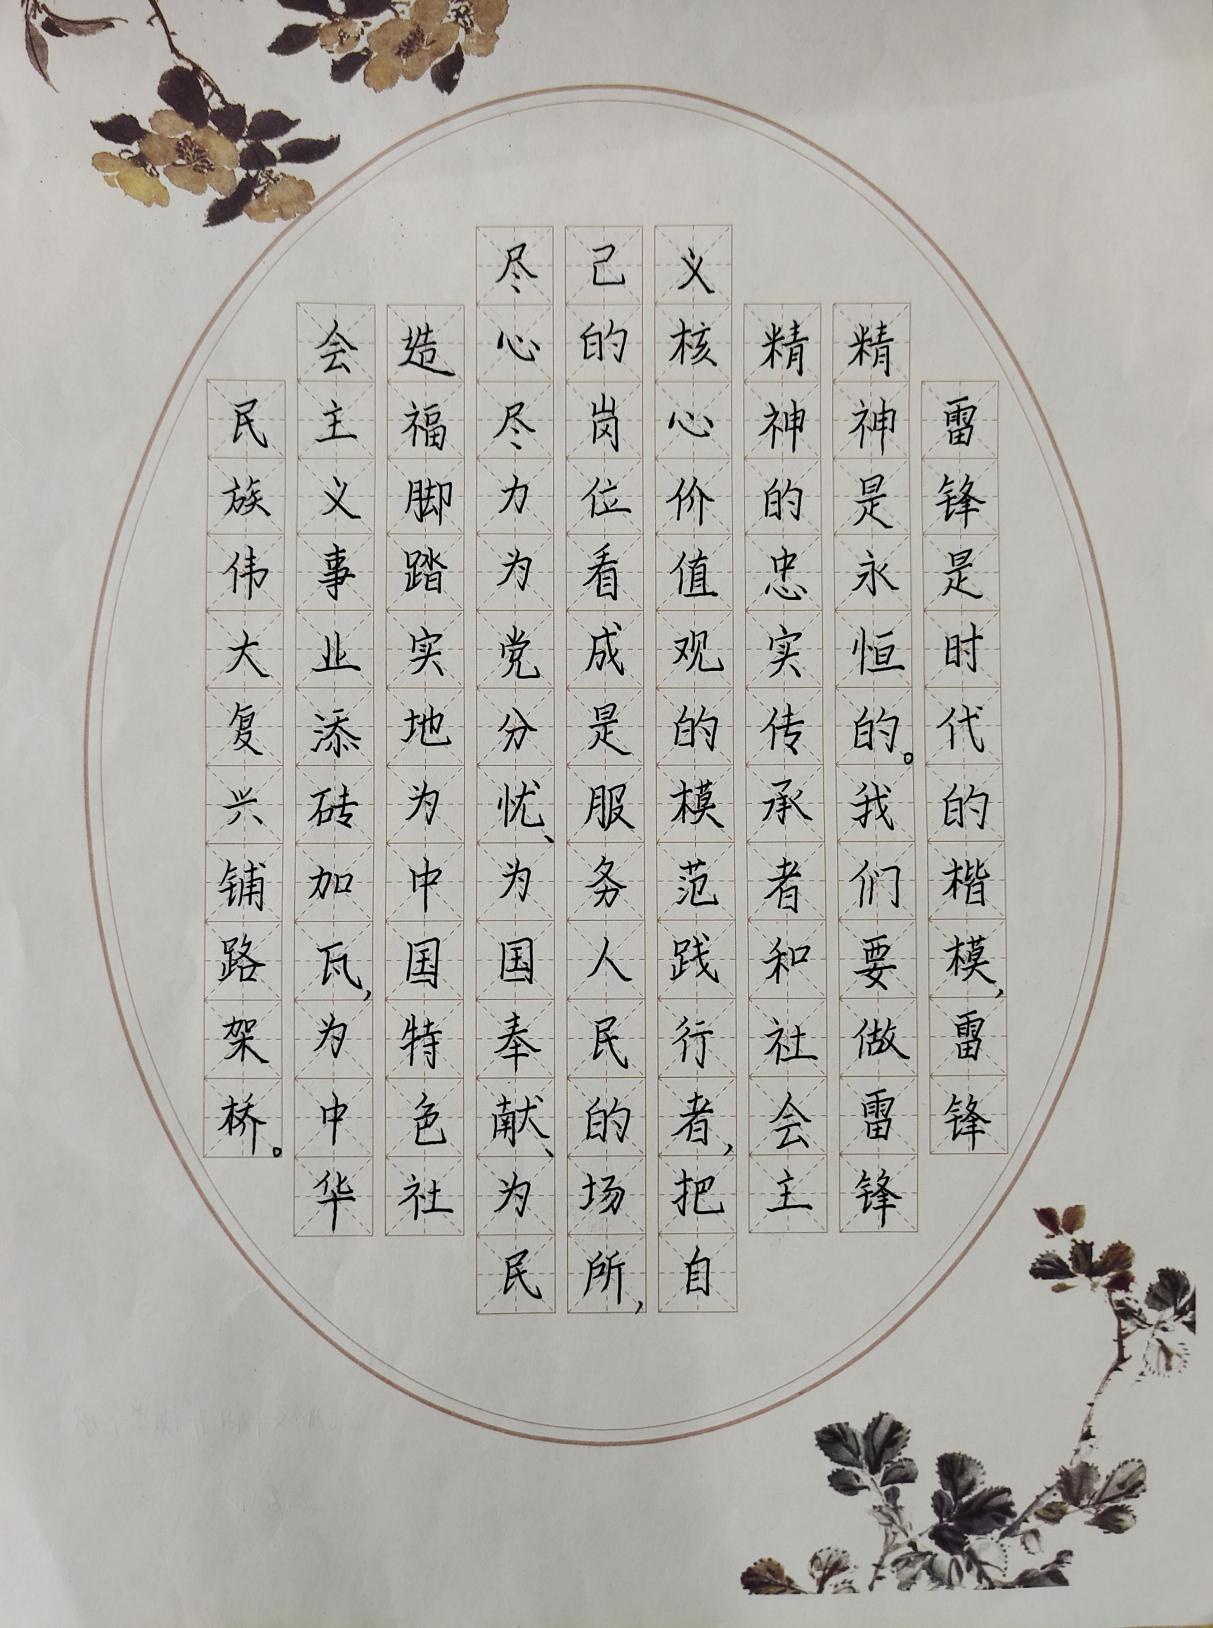 雷锋是时代的楷模,雷锋
精神是永恒的。我们要做雷锋
精神的忠实传承者和社会主
义核心价值观的模范践行者,把自
己的岗位看成是服务人民的场所,
尽心尽力为党分忧、为国奉献、为民
造福脚踏实地为中国特色社
会主义事业添砖加瓦,为中华
民族伟大复兴铺路架桥。